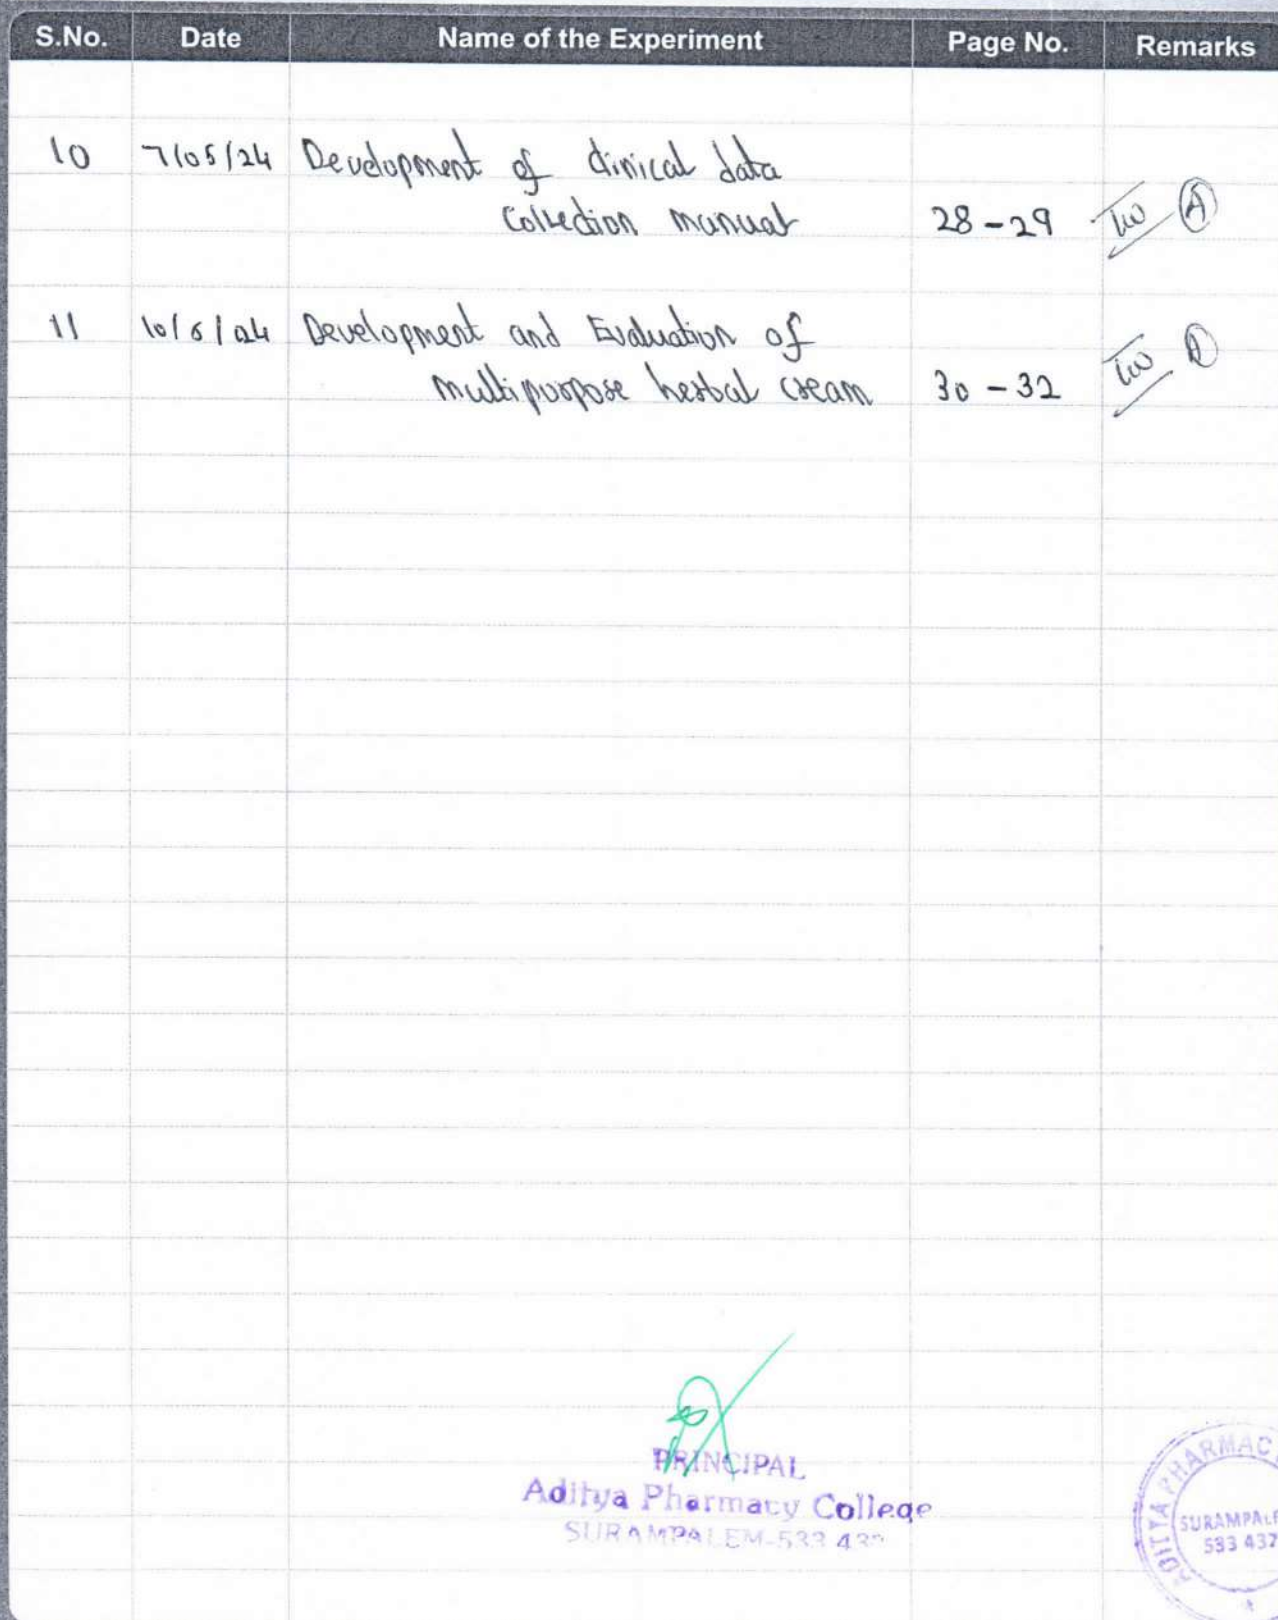 S.No. Date Name of the Experiment Page No. Remarks
10 7/05/24 Development of clinical data
collection manual 28-29 A
11 10/5/24 Development and Evaluation of
multipurpose herbal cream 30-32 A
PRINCIPAL
Aditya Pharmacy College
SURAMPALEM-533 43
ADITYA PHARMAC
SURAMPALE
533 437